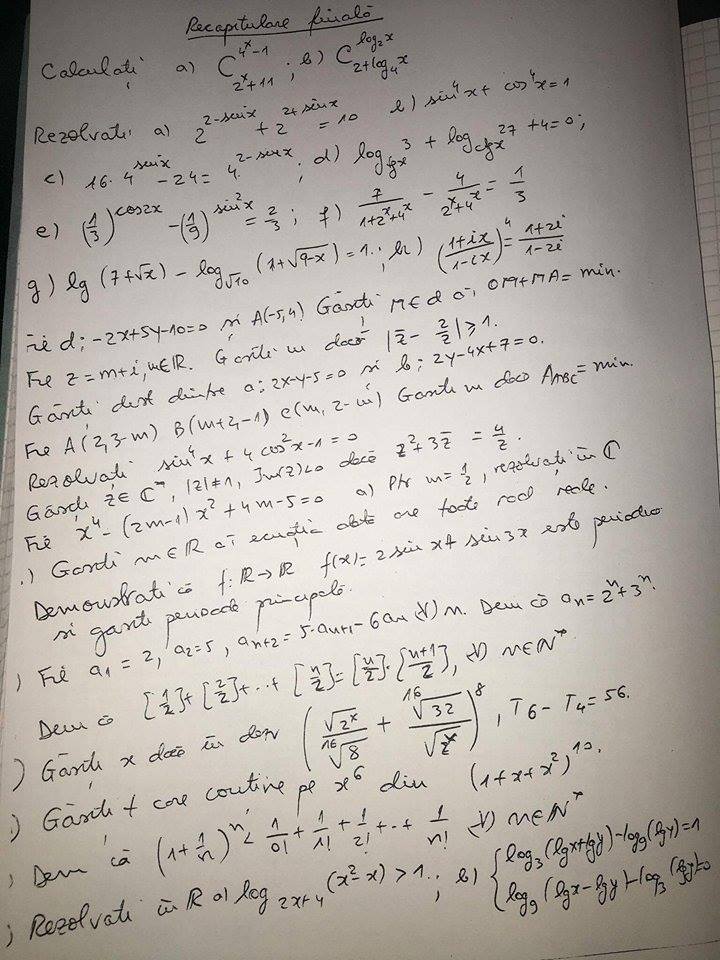 Recapitulare finală
Calculați a) C_{2^x+11}^{4^x-1} ; b) C_{2+log_4 x}^{log_2 x}
Rezolvati: a) 2^{2-sin x} + 2^{2+sin x} = 10 b) sin^4 x + cos^4 x = 1
c) 16·4^{sin x} - 24 = 4^{2-sin x} ; d) log_{tg x} 3 + log_{ctg x} 27 + 4 = 0 ;
e) (1/3)^{cos2x} - (1/9)^{sin^2 x} = 2/3 ; f) 7/(1+2^x+4^x) - 4/(2^x+4^x) = 1/3
g) lg (7+√x) - log_{√10} (1+√(9-x)) = 1 ; h) ((1+ix)/(1-ix))^4 = (1+2i)/(1-2i)
Fie d: -2x+5y-10=0 și A(-5,4) Găsiți M∈d aî OM+MA= min.
Fie z = m+i, m∈ℝ. Găsiti m dacă |z̄ - 2/z| ≥ 1.
Găsiți dist dintre a: 2x-y-5=0 si b: 2y-4x+7=0.
Fie A(2,3-m) B(m+2,-1) C(m, 2-m) Gasiti m daca A_{ABC} = min.
Rezolvati sin^4 x + 4 cos^2 x - 1 = 0
Găsiți z∈ℂ*, |z|≠1, Im(z)<0 dacă z^2+3z̄ = 4/z.
Fie x^4 - (2m-1) x^2 + 4m-5=0 a) Ptr m=1/2, rezolvați în ℂ
.) Gasiti m∈ℝ aî ecuația dată are toate răd reale.
Demonstrati că f: ℝ→ℝ f(x)= 2 sin x + sin 3x este periodică
si gasiti perioada principală.
) Fie a_1 = 2, a_2 = 5, a_{n+2} = 5·a_{n+1} - 6a_n (∀) n. Dem că a_n = 2^n + 3^n.
Dem că [1/2] + [2/2] + .. + [n/2] = [n/2]·[(n+1)/2], (∀) n∈ℕ*
) Găsiți x dacă în dezv (√2^x/^{16}√8 + ^{16}√32/√2^x)^8, T_6 - T_4 = 56.
;) Găsiti t care contine pe x^6 din (1+x+x^2)^{10}.
; Dem că (1+1/n)^n < 1/0! + 1/1! + 1/2! + .. + 1/n! (∀) n∈ℕ*
; Rezolvati in ℝ a) log_{2x+4} (x^2-x) > 1 ; b) { log_3 (lgx+lgy) - log_9 (lgy) = 1
log_9 (lgx - lgy) - log_3 (lgy) = 0